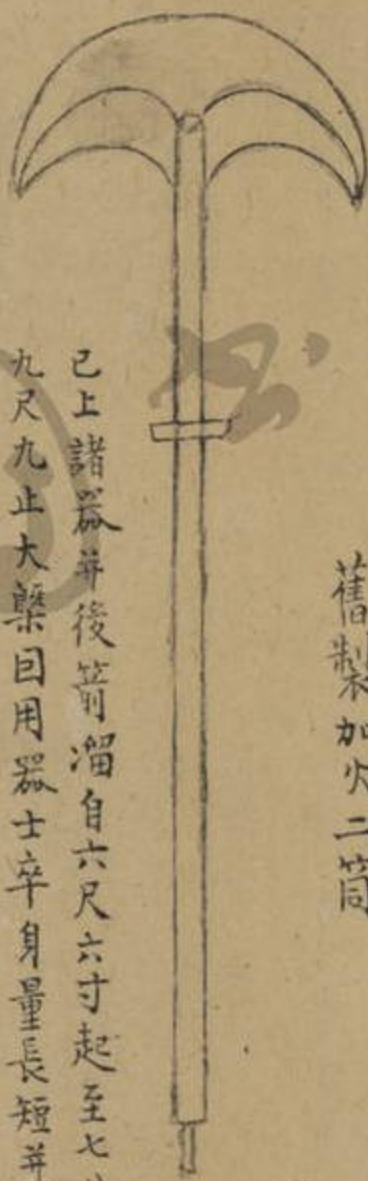 舊製加火二筒
已上諸器并後箭溜自六尺六寸起至七
九尺九止大槩因用器士卒身量長短并